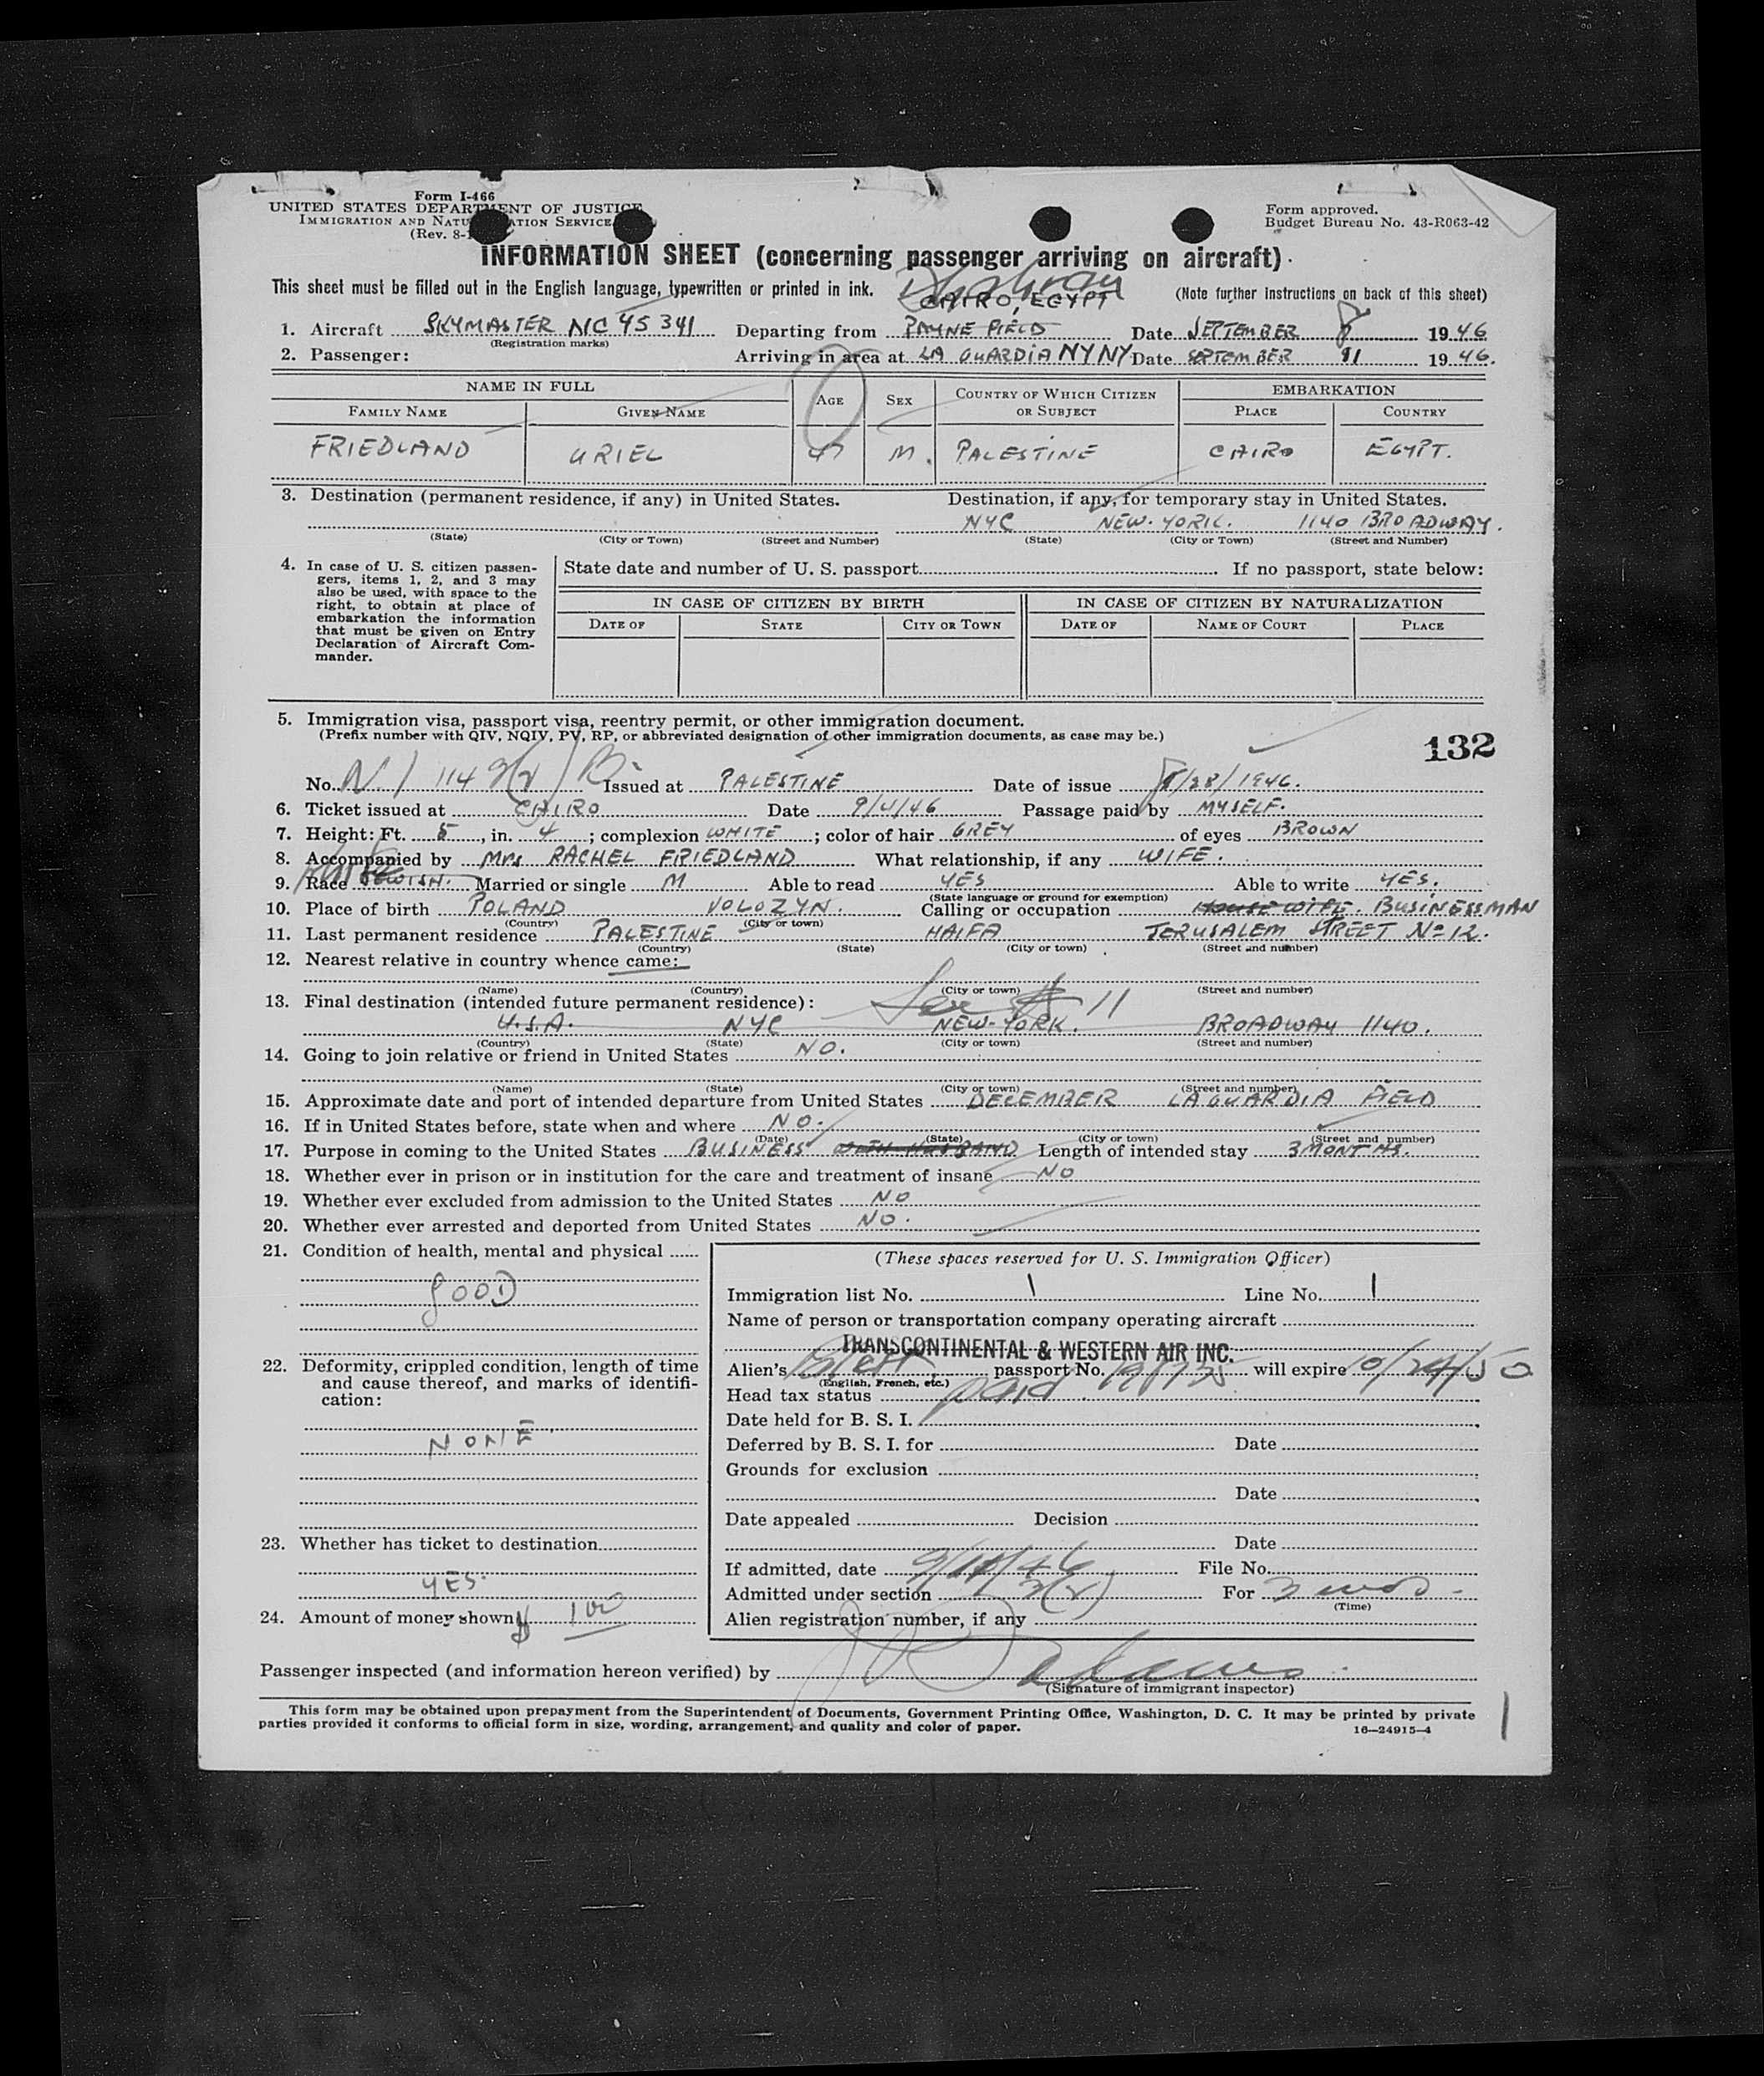 Form I-466
UNITED STATES DEPARTMENT OF JUSTICE
IMMIGRATION AND NATURALIZATION SERVICE
(Rev. 8-
Form approved.
Budget Bureau No. 43-R063-42
INFORMATION SHEET (concerning passenger arriving on aircraft)
This sheet must be filled out in the English language, typewritten or printed in ink.
(Note further instructions on back of this sheet)
Dhahran
CAIRO, EGYPT
1. Aircraft SKYMASTER NC 45341 Departing from PAYNE FIELD Date SEPTEMBER 8 1946
(Registration marks)
2. Passenger: Arriving in area at LA GUARDIA NY NY Date SEPTEMBER 11 1946.
NAME IN FULL AGE SEX COUNTRY OF WHICH CITIZEN OR SUBJECT EMBARKATION
FAMILY NAME GIVEN NAME PLACE COUNTRY
FRIEDLAND URIEL 47 M. PALESTINE CAIRO EGYPT.
3. Destination (permanent residence, if any) in United States. Destination, if any, for temporary stay in United States.
NYC NEW-YORK. 1140 BROADWAY.
(State) (City or Town) (Street and Number) (State) (City or Town) (Street and Number)
4. In case of U. S. citizen passen-
gers, items 1, 2, and 3 may
also be used, with space to the
right, to obtain at place of
embarkation the information
that must be given on Entry
Declaration of Aircraft Com-
mander.
State date and number of U. S. passport If no passport, state below:
IN CASE OF CITIZEN BY BIRTH IN CASE OF CITIZEN BY NATURALIZATION
DATE OF STATE CITY OR TOWN DATE OF NAME OF COURT PLACE
5. Immigration visa, passport visa, reentry permit, or other immigration document.
(Prefix number with QIV, NQIV, PV, RP, or abbreviated designation of other immigration documents, as case may be.)
132
No. Issued at PALESTINE Date of issue 8/28/1946.
6. Ticket issued at CAIRO Date 9/4/46 Passage paid by MYSELF.
7. Height: Ft. 5, in. 4; complexion WHITE; color of hair GREY of eyes BROWN
8. Accompanied by Mrs RACHEL FRIEDLAND What relationship, if any WIFE.
9. Race JEWISH. Married or single M Able to read YES Able to write YES.
(State language or ground for exemption)
10. Place of birth POLAND VOLOZYN. Calling or occupation HOUSEWIFE. BUSINESSMAN
(Country) (City or town)
11. Last permanent residence PALESTINE HAIFA JERUSALEM STREET No 12.
(Country) (State) (City or town) (Street and number)
12. Nearest relative in country whence came:
(Name) (Country) (City or town) (Street and number)
13. Final destination (intended future permanent residence): See # 11
U.S.A. NYC NEW-YORK. BROADWAY 1140.
(Country) (State) (City or town) (Street and number)
14. Going to join relative or friend in United States NO.
(Name) (State) (City or town) (Street and number)
15. Approximate date and port of intended departure from United States DECEMBER LAGUARDIA FIELD
16. If in United States before, state when and where NO.
(Date) (State) (City or town) (Street and number)
17. Purpose in coming to the United States BUSINESS WITH HUSBAND Length of intended stay 3 MONTHS.
18. Whether ever in prison or in institution for the care and treatment of insane NO
19. Whether ever excluded from admission to the United States NO
20. Whether ever arrested and deported from United States NO.
21. Condition of health, mental and physical
GOOD
22. Deformity, crippled condition, length of time
and cause thereof, and marks of identifi-
cation:
NONE
23. Whether has ticket to destination
YES.
24. Amount of money shown $ 100
(These spaces reserved for U. S. Immigration Officer)
Immigration list No. 1 Line No. 1
Name of person or transportation company operating aircraft
TRANSCONTINENTAL & WESTERN AIR INC.
Alien's passport No. will expire 10/24/50
(English, French, etc.)
Head tax status paid
Date held for B. S. I.
Deferred by B. S. I. for Date
Grounds for exclusion
Date
Date appealed Decision
Date
If admitted, date 9/11/46 File No.
Admitted under section 3(2) For 3 mos
(Time)
Alien registration number, if any
Passenger inspected (and information hereon verified) by
(Signature of immigrant inspector)
This form may be obtained upon prepayment from the Superintendent of Documents, Government Printing Office, Washington, D. C. It may be printed by private
parties provided it conforms to official form in size, wording, arrangement, and quality and color of paper.
16—24915-4